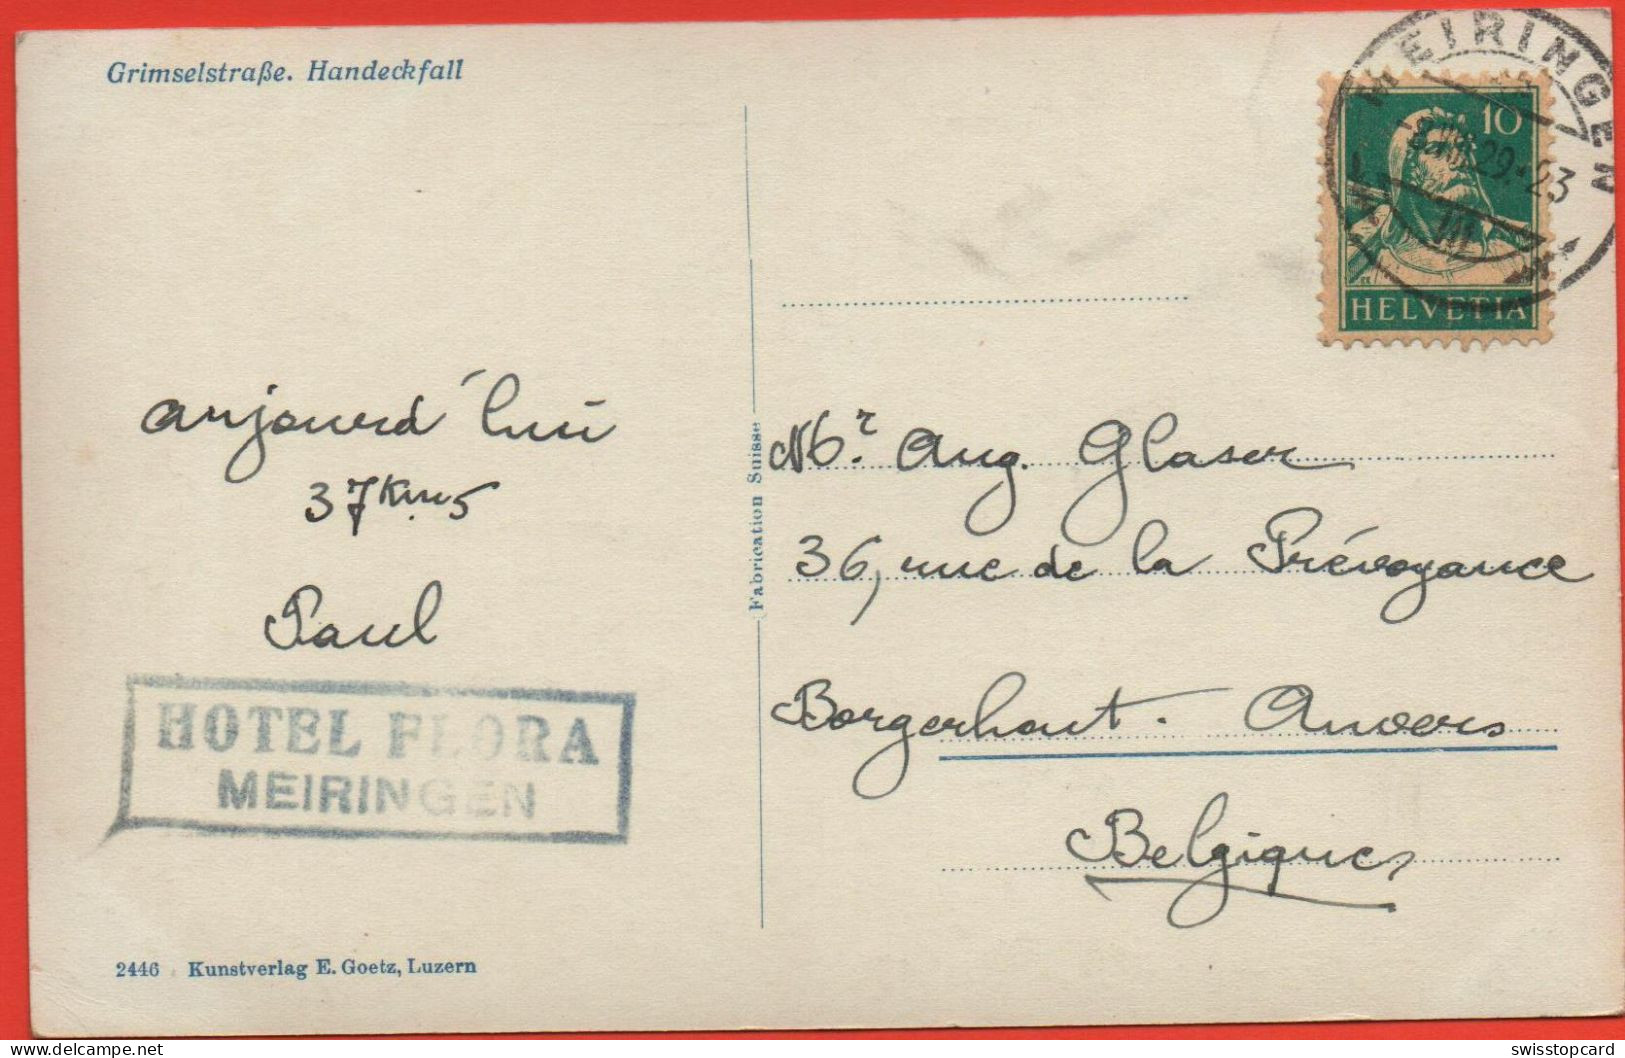 Grimselstraße. Handeckfall
MEIRINGEN
29.-23
10
HELVETIA
aujourd'hui
37 Kms
Paul
HOTEL FLORA
MEIRINGEN
2446 Kunstverlag E. Goetz, Luzern
Fabrication Suisse
Mr. Aug. Glaser
36, rue de la Prévoyance
Borgerhout. Anvers
Belgique
swisstopcard
delcampe.net